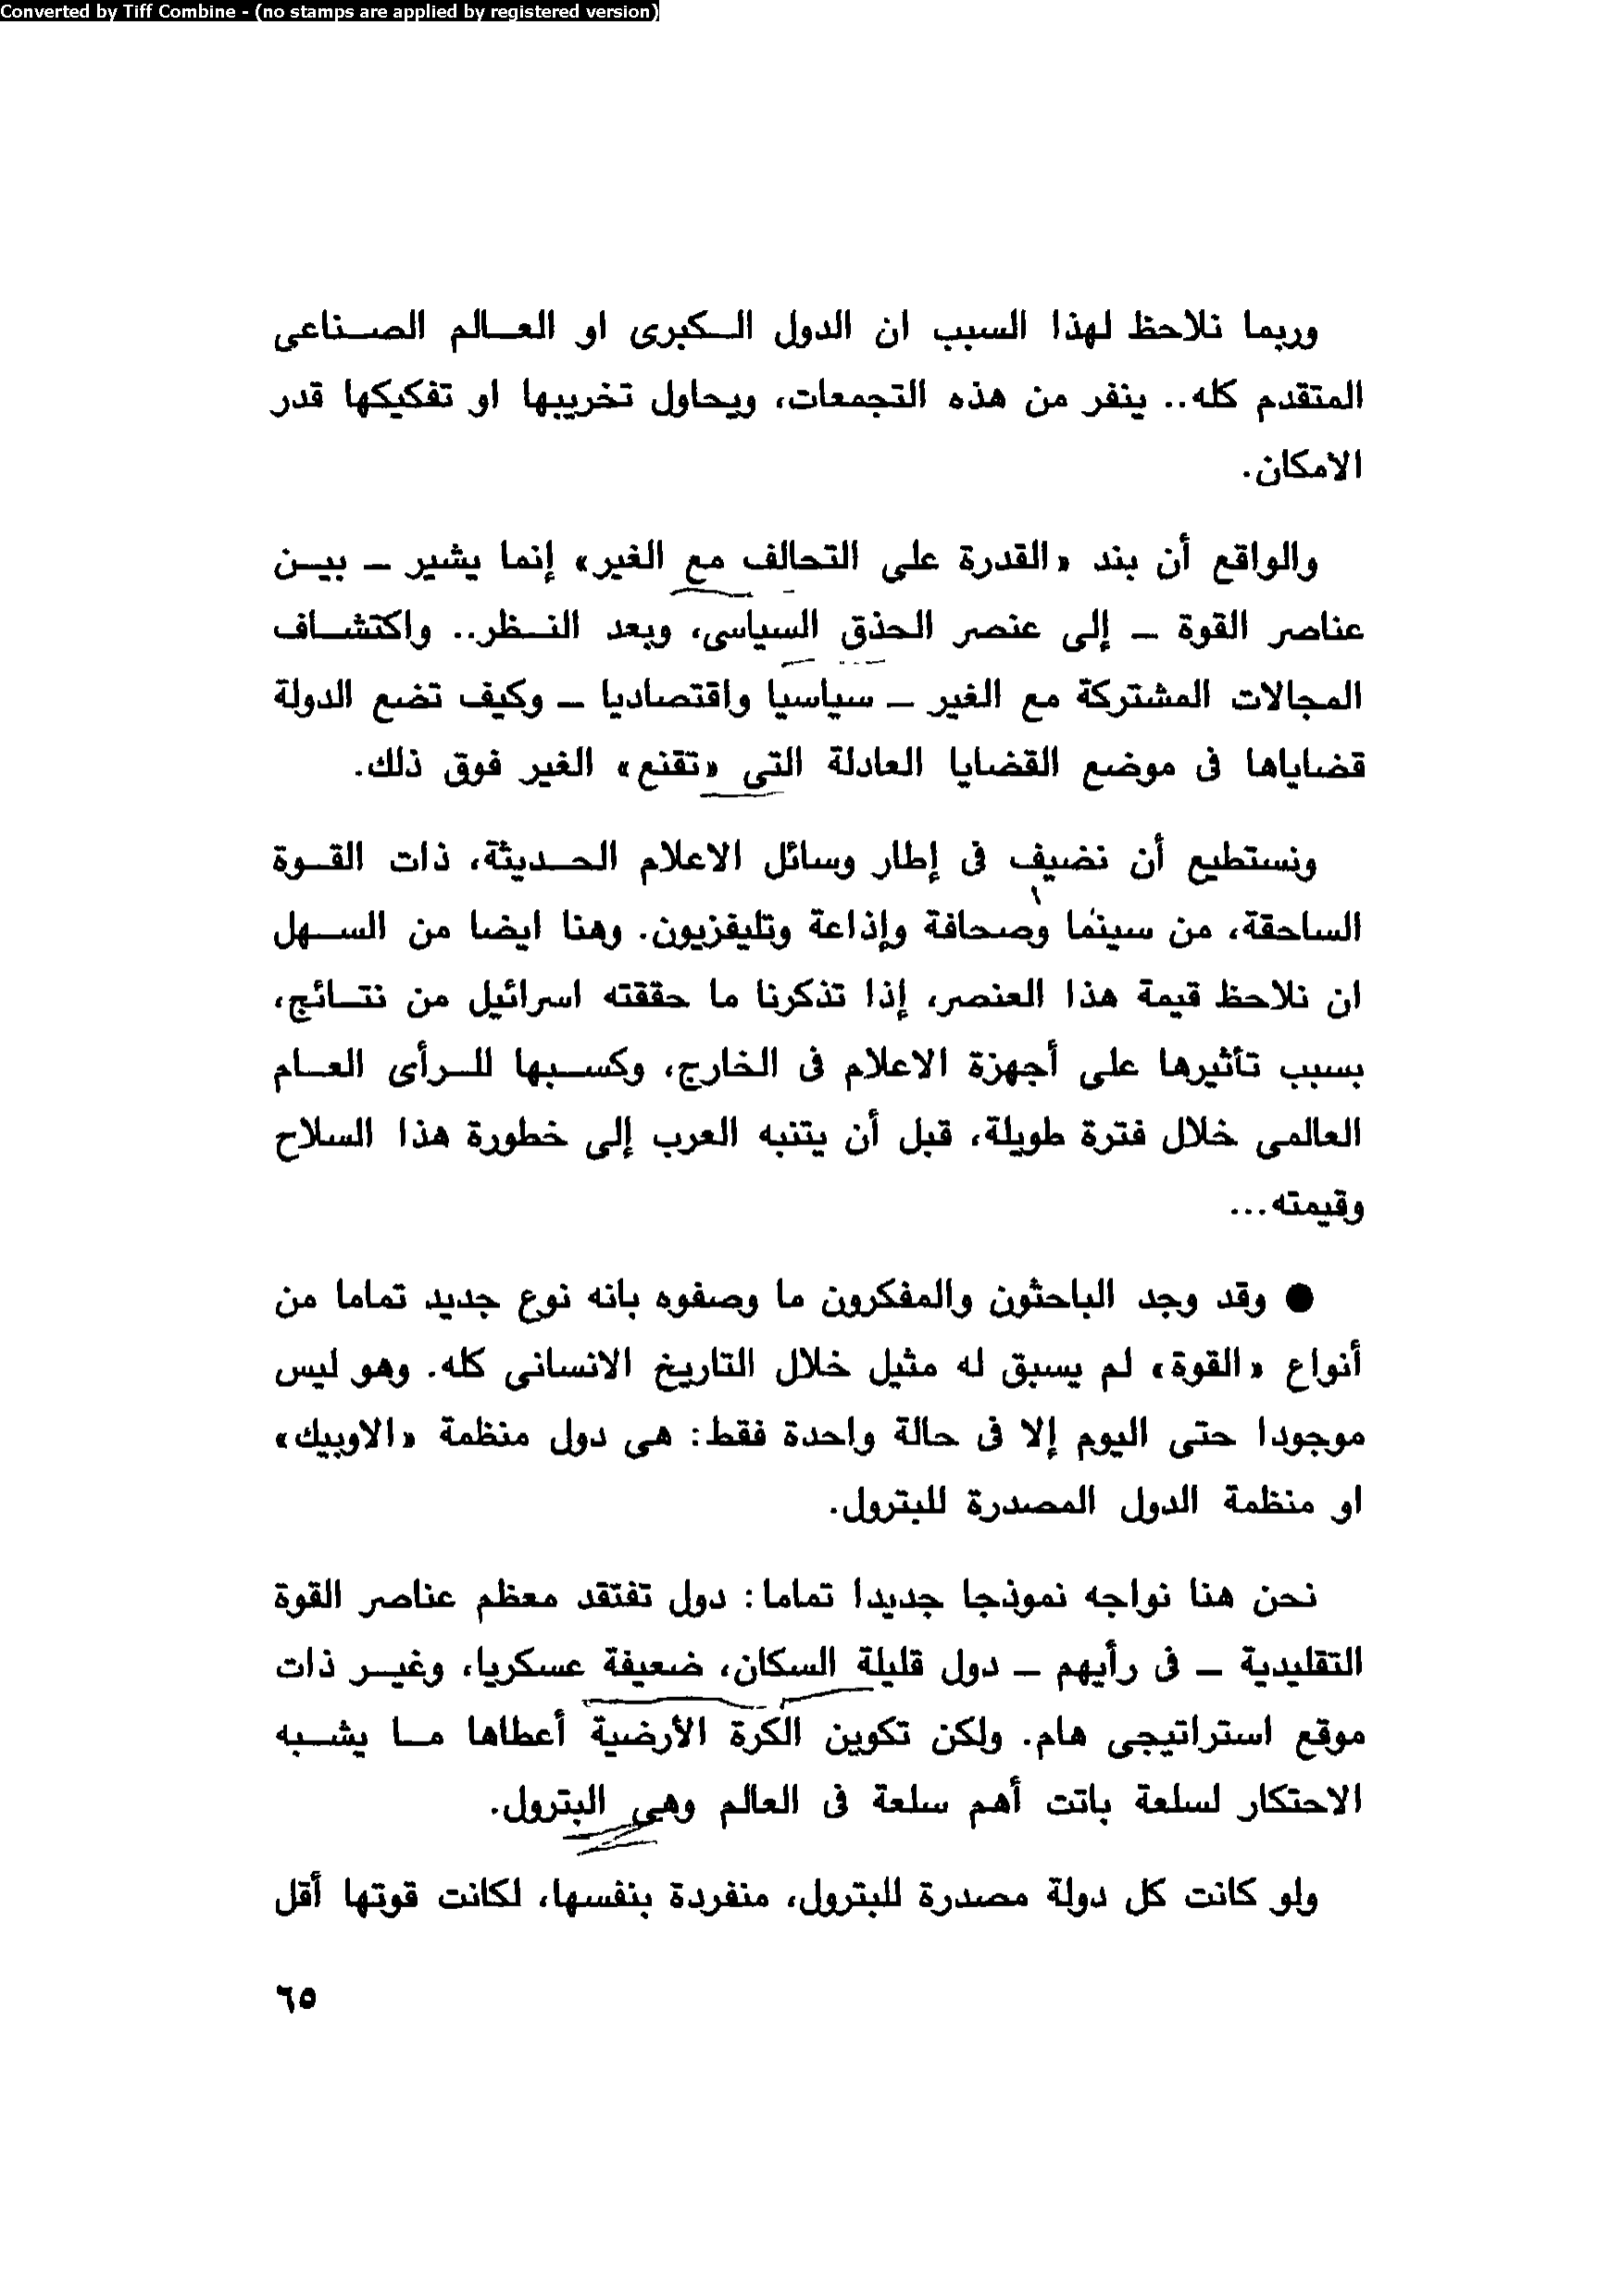 Converted by Tiff Combine - (no stamps are applied by registered version)
وربما نلاحظ لهذا السبب ان الدول الكبرى او العالم الصناعى
المتقدم كله.. ينفر من هذه التجمعات، ويحاول تخريبها او تفكيكها قدر
الامكان.
والواقع أن بند «القدرة على التحالف مع الغير» إنما يشير – بين
عناصر القوة – إلى عنصر الحذق السياسى، وبعد النظر.. واكتشاف
المجالات المشتركة مع الغير – سياسيا واقتصاديا – وكيف تضع الدولة
قضاياها فى موضع القضايا العادلة التى «تقنع» الغير فوق ذلك.
ونستطيع أن نضيف فى إطار وسائل الاعلام الحديثة، ذات القوة
الساحقة، من سينما وصحافة وإذاعة وتليفزيون. وهنا ايضا من السهل
ان نلاحظ قيمة هذا العنصر، إذا تذكرنا ما حققته اسرائيل من نتائج،
بسبب تأثيرها على أجهزة الاعلام فى الخارج، وكسبها للرأى العام
العالمى خلال فترة طويلة، قبل أن يتنبه العرب إلى خطورة هذا السلاح
وقيمته...
● وقد وجد الباحثون والمفكرون ما وصفوه بانه نوع جديد تماما من
أنواع «القوة» لم يسبق له مثيل خلال التاريخ الانسانى كله. وهو ليس
موجودا حتى اليوم إلا فى حالة واحدة فقط: هى دول منظمة «الاوبيك»
او منظمة الدول المصدرة للبترول.
نحن هنا نواجه نموذجا جديدا تماما: دول تفتقد معظم عناصر القوة
التقليدية – فى رأيهم – دول قليلة السكان، ضعيفة عسكريا، وغير ذات
موقع استراتيجى هام. ولكن تكوين الكرة الأرضية أعطاها ما يشبه
الاحتكار لسلعة باتت أهم سلعة فى العالم وهى البترول.
ولو كانت كل دولة مصدرة للبترول، منفردة بنفسها، لكانت قوتها أقل
٦٥